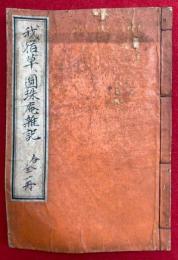 我宿草 圓珠庵雜記 合全一冊